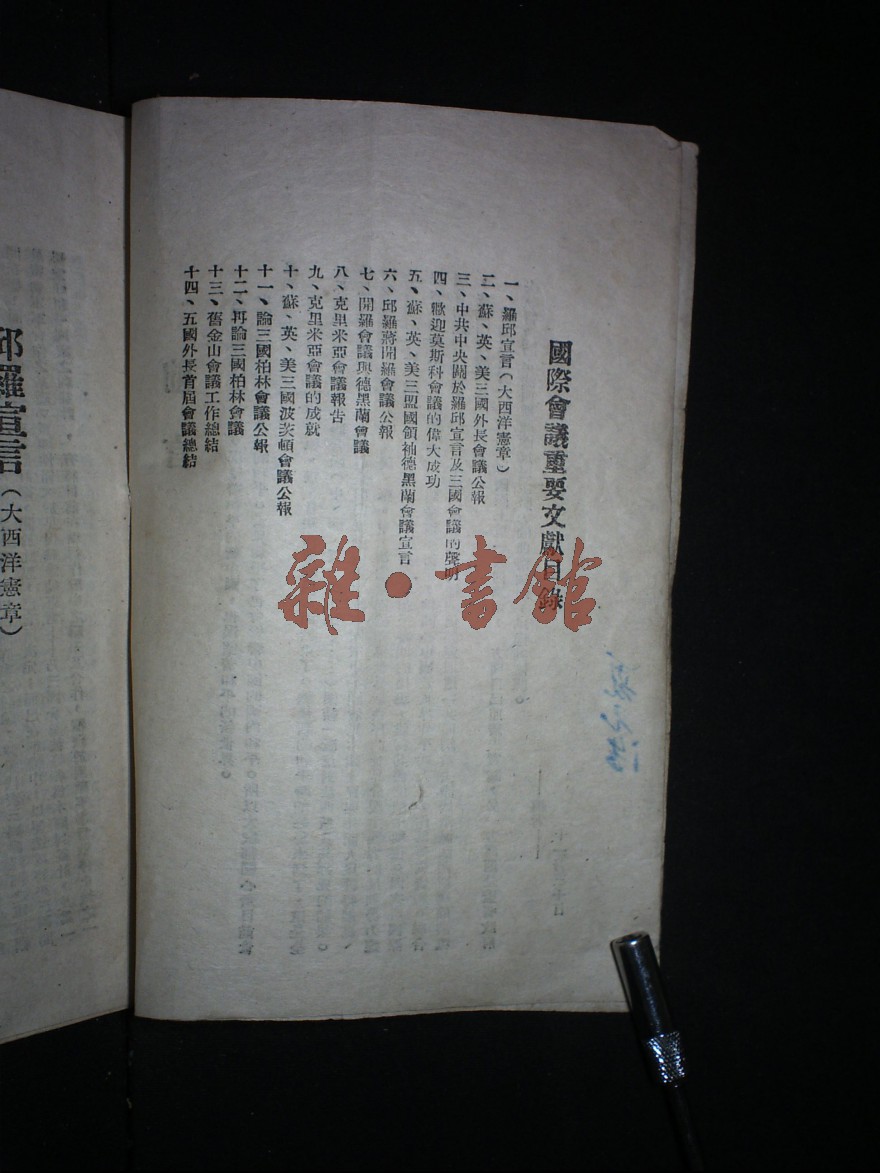 國際會議重要文獻目錄
一、羅邱宣言(大西洋憲章)
二、蘇、英、美三國外長會議公報
三、中共中央關於羅邱宣言及三國會議的聲明
四、歡迎莫斯科會議的偉大成功
五、蘇、英、美三盟國領袖德黑蘭會議宣言
六、邱羅蔣開羅會議公報
七、開羅會議與德黑蘭會議
八、克里米亞會議報告
九、克里米亞會議的成就
十、蘇、英、美三國波茨頓會議公報
十一、論三國柏林會議公報
十二、再論三國柏林會議
十三、舊金山會議工作總結
十四、五國外長首屆會議總結
雜·書館
邱羅宣言(大西洋憲章)